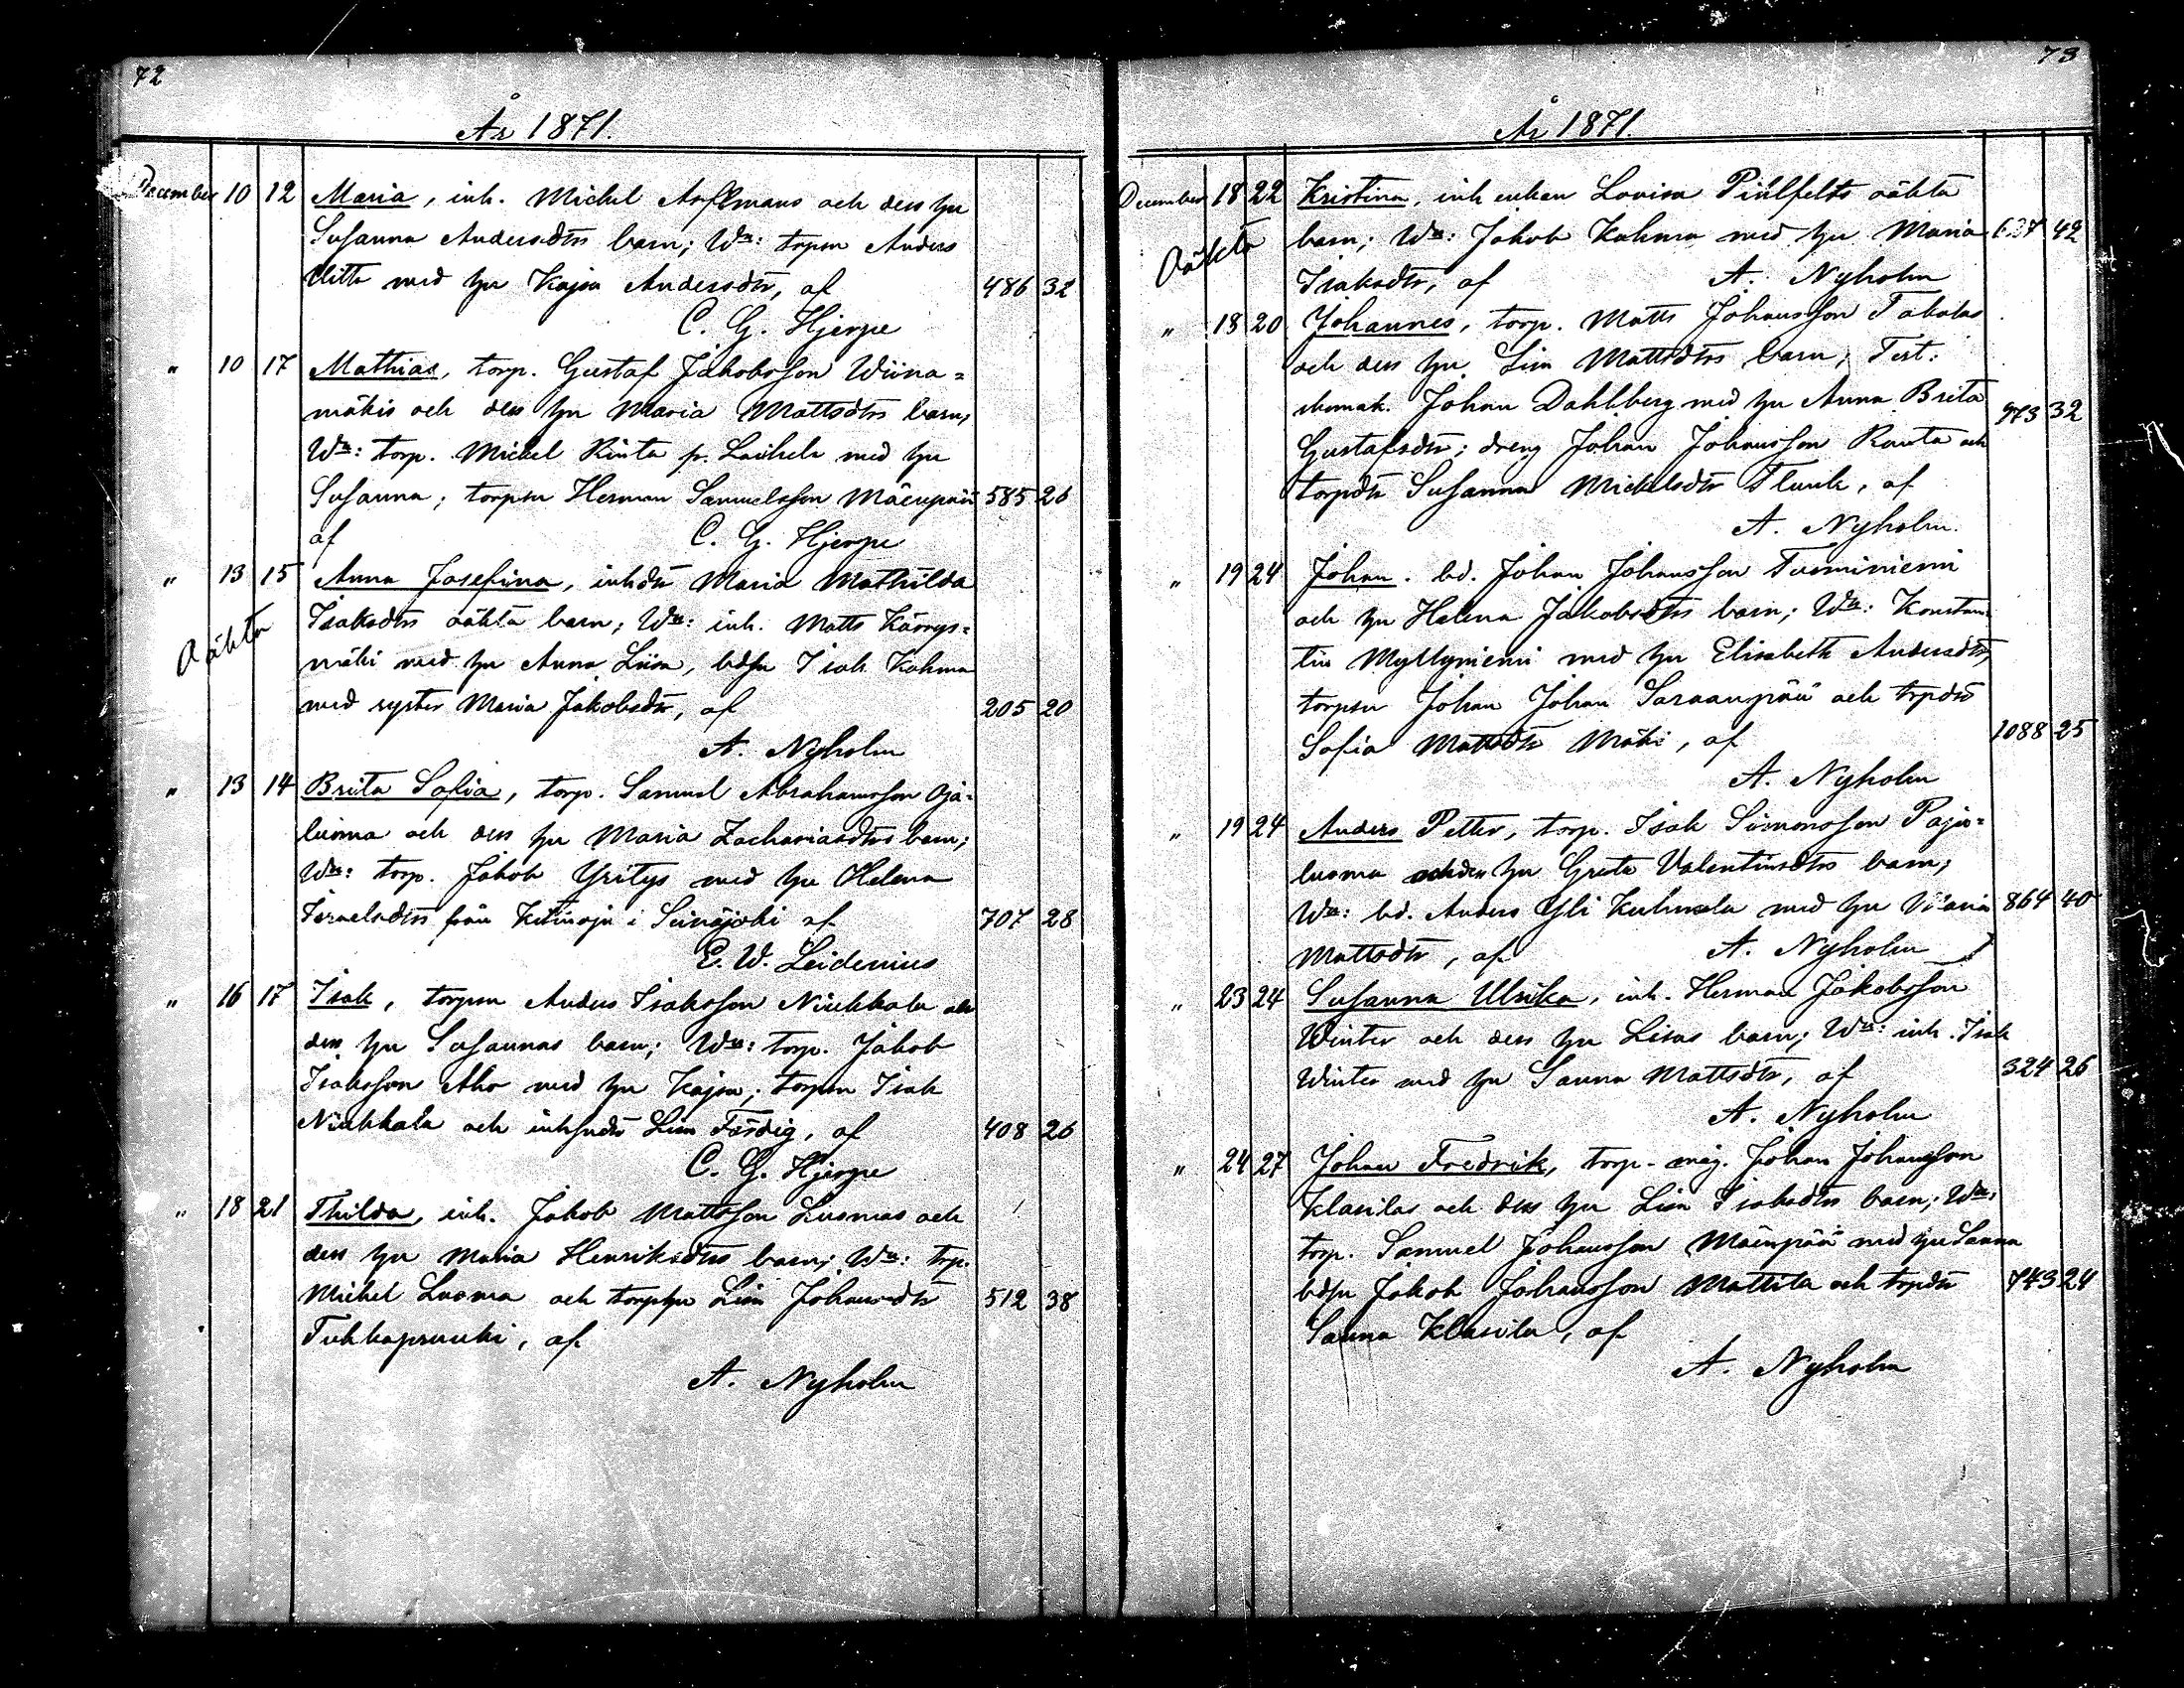 72
År 1871.
December 10 12 Maria, inh. Michel Asplmans och dess hu
Susanna Andersdtrs barn; Wn: torpsn Anders
Uitto med hu Kajsa Andersdtr, af 486 32
C. G. Hjerpe
" 10 17 Mathias, torp. Gustaf Jakobsson Wiina=
mäkis och dess hu Maria Mattsdtrs barn,
Wn: torp. Michel Rinta fr. Laihela med hu
Susanna; torpsn Herman Samuelsson Mäenpää 585 26
af C. G. Hjerpe
" 13 15 Anna Josefina, inhdtr Maria Mathilda
Oäkta
Isaksdtrs oäkta barn; Wn: inh. Matts Kärrys=
mäki med hu Anna Liisa, bdsn Isak Kahma
med syster Maria Jakobsdtr, af 205 20
A. Nyholm
" 13 14 Brita Sofia, torp. Samuel Abrahamsson Oja=
luoma och dess hu Maria Zachariasdtrs barn;
Wn: torp. Jakob Yritys med hu Helena
Israelsdtr från Kitinoja i Seinäjoki af 707 28
E. W. Leidenius
" 16 17 Isak, torpsn Anders Isaksson Niukkala och
dess hu Susannas barn; Wn: torp. Jakob
Isaksson Aho med hu Kajsa; torpsn Isak
Niukkala och inhsndtr Lisa Färdig, af 408 26
C. G. Hjerpe
" 18 21 Thilda, inh. Jakob Mattsson Luomas och
dess hu Maria Henriksdtrs barn; Wn: trp.
Michel Luoma och torphu Lisa Johansdtr 512 38
Tuhkapruuki, af
A. Nyholm
73
År 1871.
December 18 22 Kristina, inh enkan Lovisa Pihlfelts oäkta
Oäkta
barn; Wn: Jakob Kahma med hu Maria 627 42
Isaksdtr, af A. Nyholm
" 18 20 Johannes, torp. Matts Johansson Takalas
och dess hu Lisa Mattsdtrs barn; Test:
skomak. Johan Dahlberg med hu Anna Brita 973 32
Gustafsdtr; dreng Johan Johansson Ranta och
torpdtr Susanna Michelsdtr Flunk, af
A. Nyholm.
" 19 24 Johan. bd. Johan Johansson Tuominiemi
och hu Helena Jakobsdtrs barn; Wn: Konstan=
tin Myllyniemi med hu Elisabeth Andersdtr,
torpsn Johan Johan Saraanpää och trpdtr
Sofia Mattsdtr Mäki, af 1088 25
A. Nyholm
" 19 24 Anders Petter, torp. Isak Simonsson Paju=
luoma och dess hu Greta Valentinsdtrs barn;
Wn: bd. Anders Yli Kuhmala med hu Maria 864 40
Mattsdtr, af A. Nyholm
" 23 24 Susanna Ulrika, inh. Herman Jakobsson
Winter och dess hu Lisas barn; Wn: inh. Isak
Winter med hu Sanna Mattsdtr, af 324 26
A. Nyholm
" 24 27 Johan Fredrik, torp-måg. Johan Johansson
Klasilas och dess hu Lisa Isaksdtrs barn; Wn:
torp. Samuel Johansson Mäenpää med hu Sanna
bdsn Jakob Johansson Mattila och trpdtr 743 24
Sanna Klasila, af
A. Nyholm